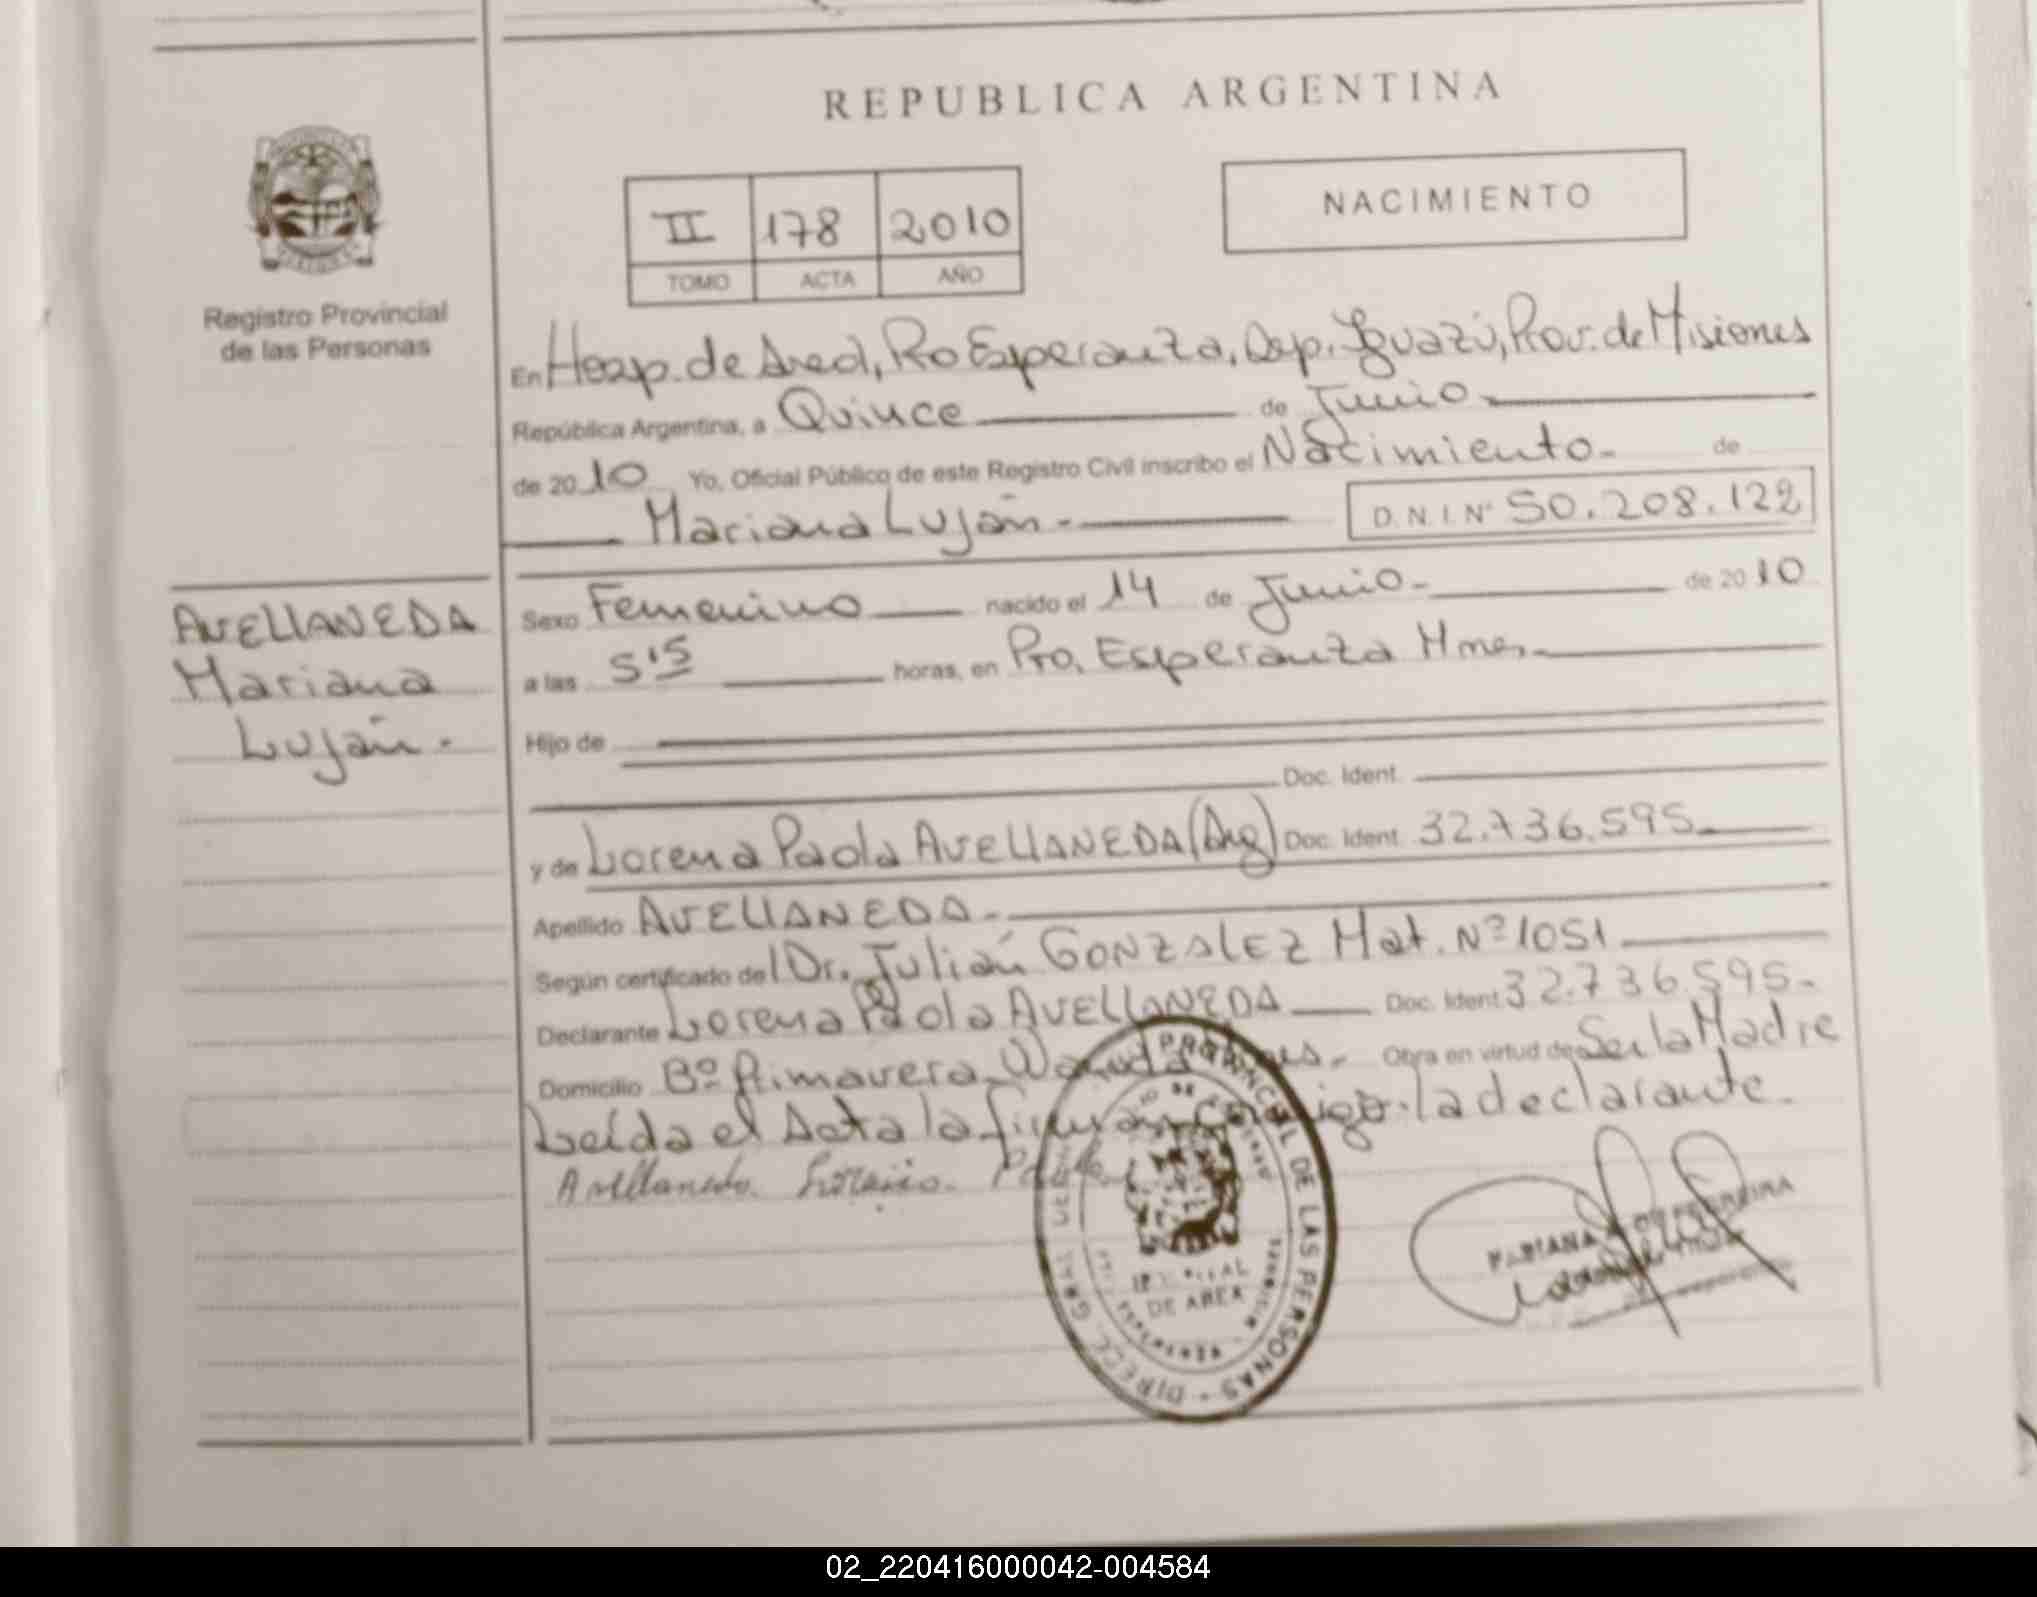 REPUBLICA ARGENTINA
II 178 2010
TOMO ACTA AÑO
NACIMIENTO
Registro Provincial
de las Personas
En Hosp. de Area, Pto Esperanza, Dep. Iguazú, Prov. de Misiones
República Argentina, a Quince de Junio
de 2010 Yo, Oficial Público de este Registro Civil inscribo el Nacimiento. de
Mariana Luján.
D.N.I. Nº 50.208.122
AVELLANEDA
Mariana
Luján.
Sexo Femenino nacido el 14 de Junio. de 2010
a las 5'15 horas, en Pto. Esperanza Mnes.
Hijo de
Doc. Ident.
y de Lorena Paola AVELLANEDA (Arg) Doc. Ident. 32.736.595
Apellido AVELLANEDA.
Según certificado del Dr. Julián GONZALEZ Mat. Nº 1051
Declarante Lorena Paola AVELLANEDA Doc. Ident 32.736.595.
Domicilio Bº Primavera, Wanda Obra en virtud de Ser la Madre
Leída el Acta la firman conmigo la declarante.
Avellaneda. Lorena. Paola
DIRECC. GRAL DEL REG. PROVINCIAL DE LAS PERSONAS
DE AREA
FABIANA FERREIRA
02_220416000042-004584